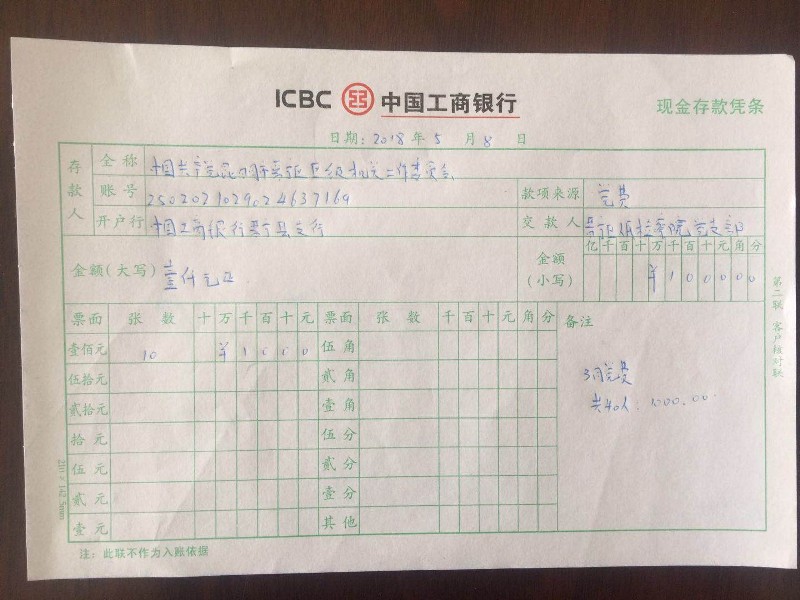 ICBC 中国工商银行
现金存款凭条
日期: 2018 年 5 月 8 日
存款人
全称 中国共产党昆明市晋宁区区级机关工作委员会
账号 2502021029024637169
款项来源 党费
开户行 中国工商银行晋宁县支行
交款人 晋宁区 检察院党支部
金额(大写) 壹仟元正
金额(小写)
亿 千 百 十 万 千 百 十 元 角 分
¥ 1 0 0 0 0 0
票面 张数 十 万 千 百 十 元 票面 张数 千 百 十 元 角 分 备注
壹佰元 10 ¥ 1 0 0 0 伍角
伍拾元 贰角
3月党费
贰拾元 壹角
共40人. 1000.00
拾元 伍分
伍元 贰分
贰元 壹分
壹元 其他
注: 此联不作为入账依据
第二联 客户核对联